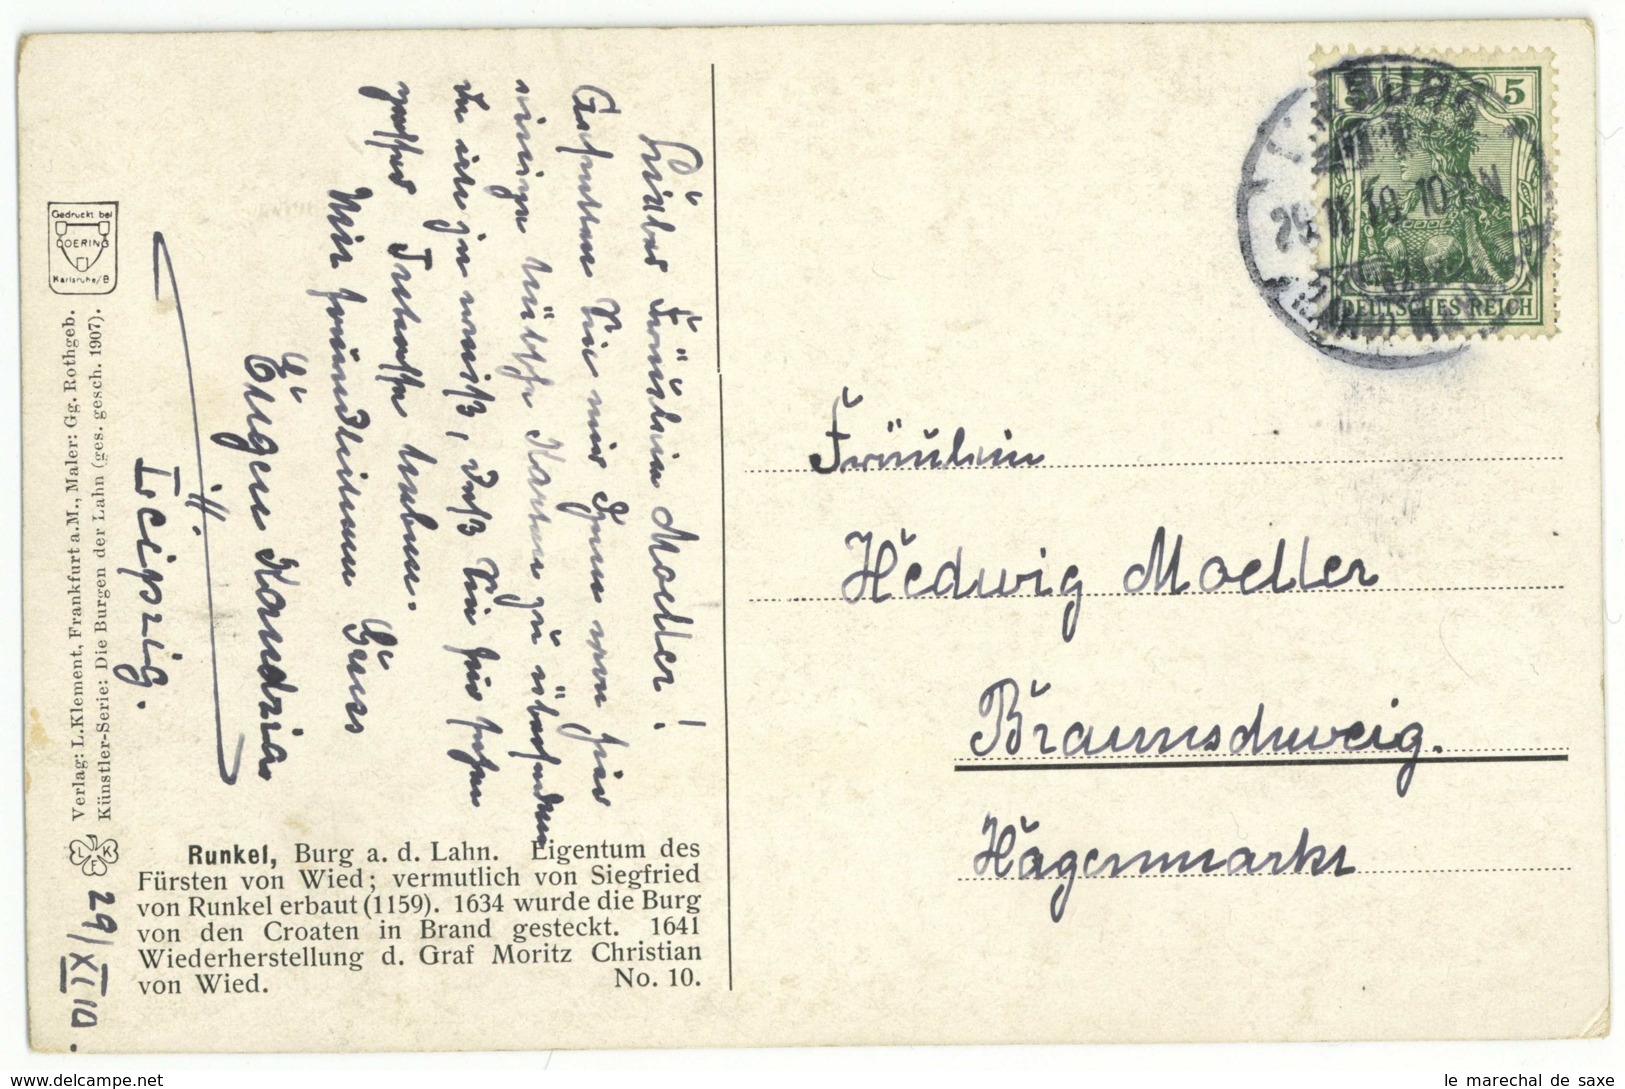 Liebes Fräulein Moeller!
Gestatten Sie mir Ihnen von hier
einige hübsche Karten zu übersenden
da ich ja weiß, daß Sie für sehen
großes Interesse haben.
Mit freundlichem Gruss
Eugen
Leipzig.
29/XI 10.
Gedruckt bei
DOERING
Karlsruhe/B
Verlag: L. Klement, Frankfurt a. M., Maler: Gg. Rothgeb.
Künstler-Serie: Die Burgen der Lahn (ges. gesch. 1907).
L K
F
Runkel, Burg a. d. Lahn. Eigentum des
Fürsten von Wied; vermutlich von Siegfried
von Runkel erbaut (1159). 1634 wurde die Burg
von den Croaten in Brand gesteckt. 1641
Wiederherstellung d. Graf Moritz Christian
von Wied. No. 10.
5 5
DEUTSCHES REICH
29.11.10. 10-11N
Fräulein
Hedwig Moeller
Braunschweig.
Hagenmarkt
le marechal de saxe